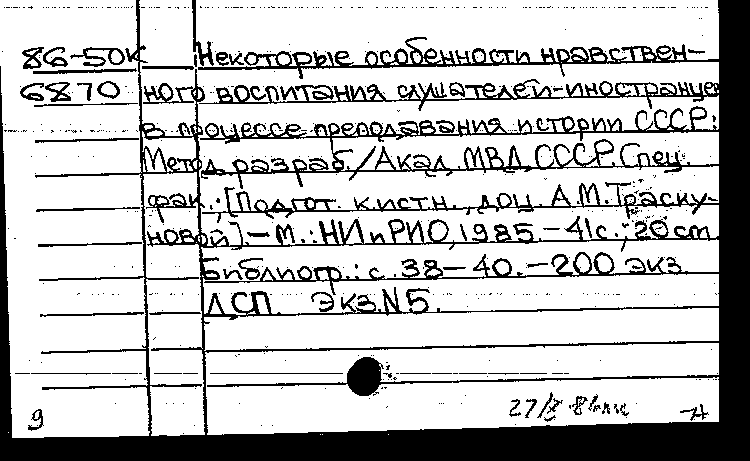 86-50к Некоторые особенности нравствен-
6870 ного воспитания слушателей-иностранцев
в процессе преподавания истории СССР:
Метод. разраб./Акад. МВД СССР. Спец.
фак.; [Подгот. к.ист.н., доц. А.М.Траску-
новой]–М.:НИиРИО,1985.–41с.;20см.
Библиогр.: с. 38–40.–200 экз.
ДСП. Экз.N5.
9